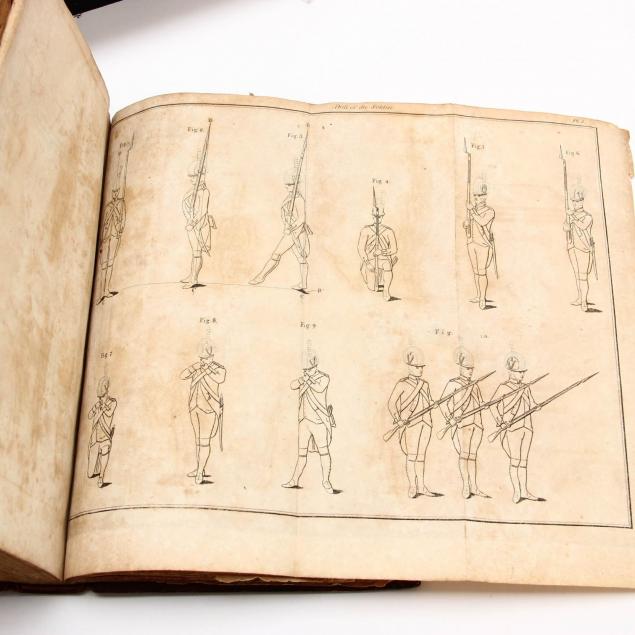 Drill of the Soldier.
Pl. 1.
Fig. 2.
Fig. 3.
Fig. 4.
Fig. 5
Fig. 6.
Fig. 7
Fig. 8.
Fig. 9
Fig. 10.